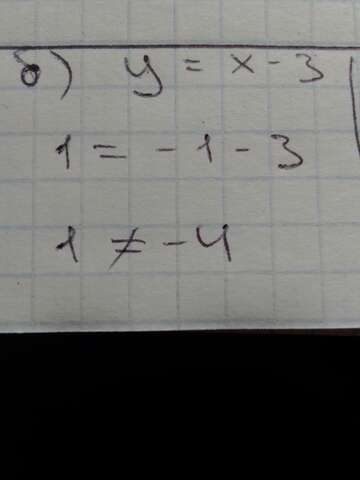 б) y = x - 3
1 = -1 - 3
1 ≠ -4